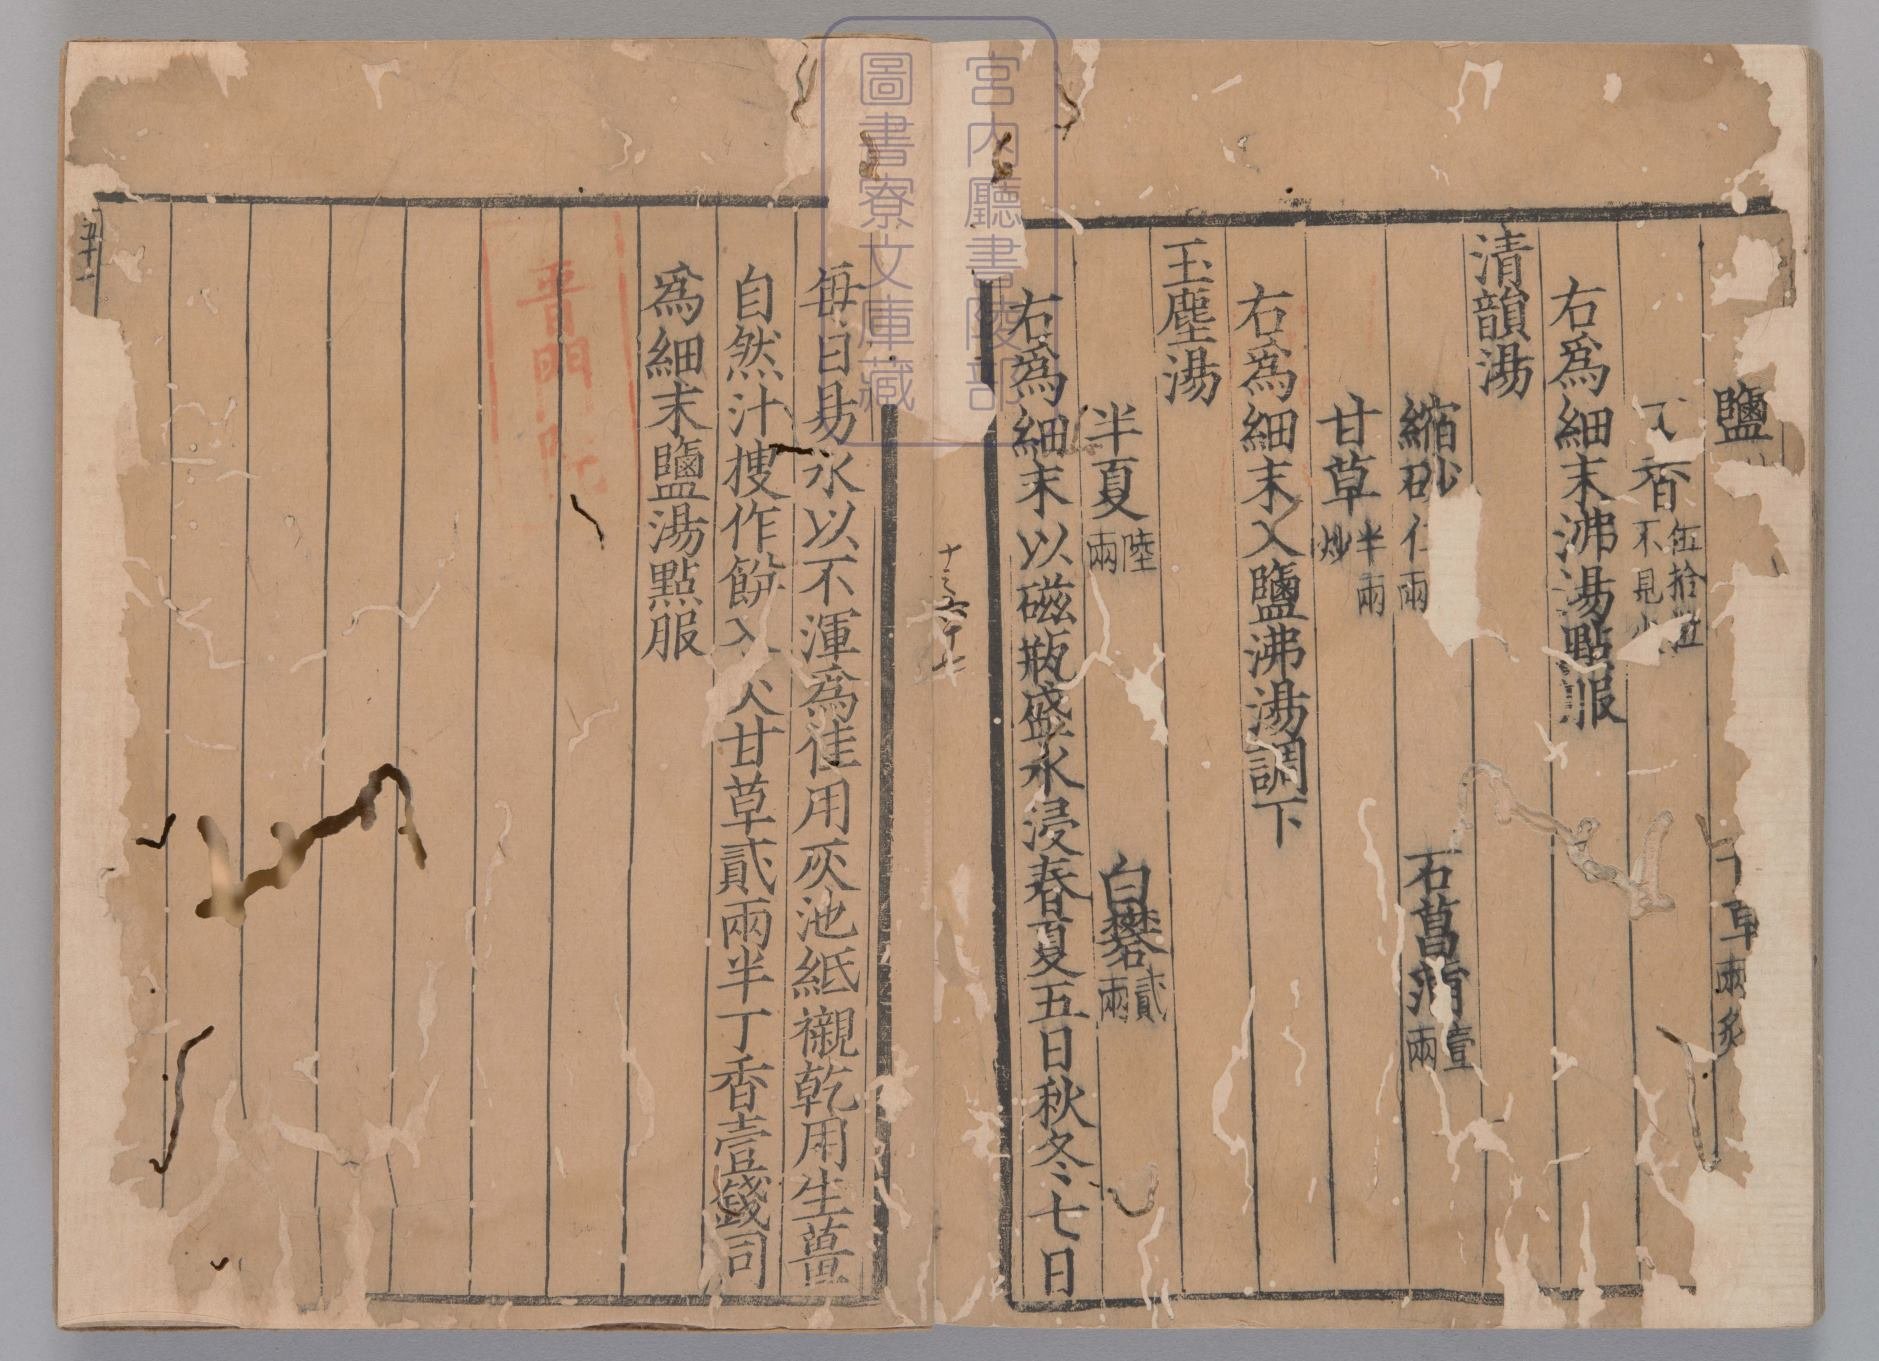 鹽 草兩炙
香伍拾不見
右爲細末沸湯點服
清韻湯
縮砂仁兩 石菖蒲壹兩
甘草半兩炒
右爲細末入鹽沸湯調下
玉塵湯
半夏陸兩 白礬貳兩
右爲細末以磁瓶盛水浸春夏五日秋冬七日
每日易水以不渾爲佳用灰池紙襯乾用生薑
自然汁搜作餅入 甘草貳兩半丁香壹錢同
爲細末鹽湯點服
普門院
五十一
宮内廳書陵部
圖書寮文庫藏